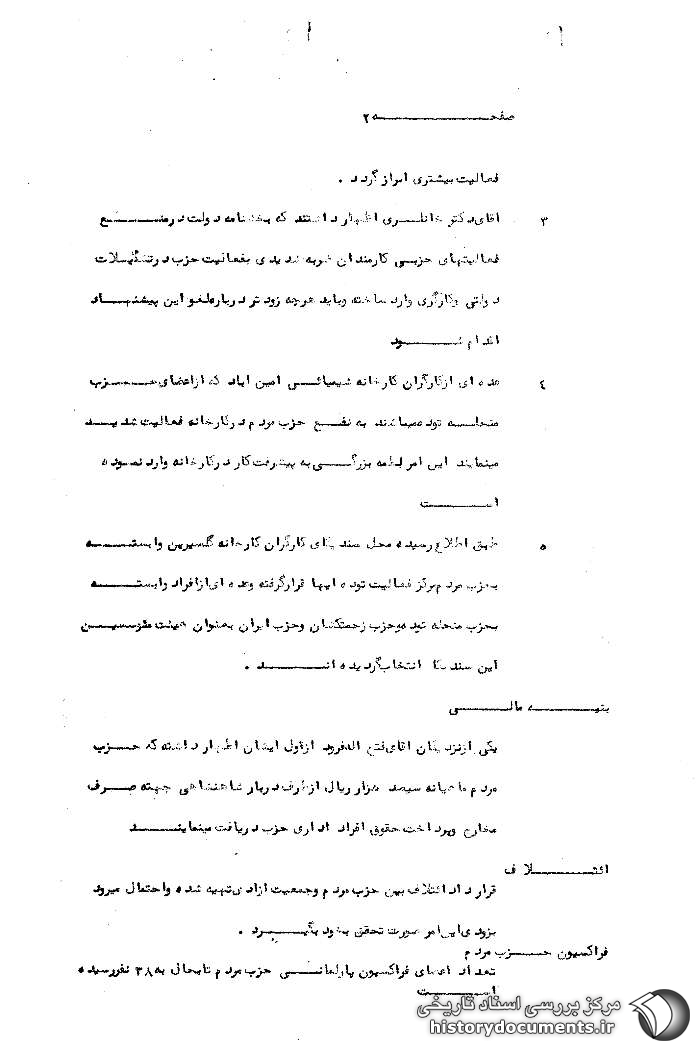 صفحـــه ۲
فعالیت بیشتری ابراز گردد .
۳ اقای دکتر خانلری اظهار داشتند که بخشنامه دولت در منع
فعالیتهای حزبی کارمندان ضربه شدیدی بفعالیت حزب در تشکیلات
دولتی وکارگری وارد ساخته وباید هرچه زودتر درباره لغو این پیشنهاد
اقدام شود
٤ عده ای از کارگران کارخانه شیمیائی امین اباد که از اعضای حزب
منحله توده میباشند به نفع حزب مردم در کارخانه فعالیت شدید
مینمایند این امر لطمه بزرگی به پیشرفت کار در کارخانه وارد نموده
است
۵ طبق اطلاع رسیده محل سندیکای کارگران کارخانه گلیسیرین وابسته
بحزب مردم مرکز فعالیت توده ایها قرار گرفته وعده ای از افراد وابسته
بحزب منحله توده وحزب زحمتکشان وحزب ایران بعنوان هیئت مؤسسین
این سندیکا انتخاب گردیده اند .
بنیه مالی
یکی از نزدیکان اقای فتح اله فرود از قول ایشان اظهار داشته که حزب
مردم ماهیانه سیصد هزار ریال از طرف دربار شاهنشاهی جهته صرف
مخارج وپرداخت حقوق افراد اداری حزب دریافت مینماید
ائتلاف
قرارداد ائتلاف بین حزب مردم وجمعیت ازادی تهیه شده واحتمال میرود
بزودی این امر صورت تحقق بخود بگیرد .
فراکسیون حزب مردم
تعداد اعضای فراکسیون پارلمانی حزب مردم تابحال به ۳۸ نفر رسیده
است
مرکز بررسی اسناد تاریخی
historydocuments.ir